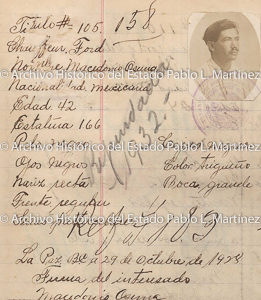 Título # 105, 158
Chauffeur, Ford.
Nombre Macedonio Osuna
Archivo Histórico del Estado Pablo L. Martínez
Nacional dad mexicana
Edad 42
Estatura 166
Pelo
Archivo Histórico del Estado Pablo L. Martínez
Ojos negros Color trigueño
Nariz recta Boca grande
Frente pequeña
Archivo Histórico del Estado Pablo L. Martínez
Ref. 183
1932
La Paz, B.C. a 29 de Octubre, de 1928
Archivo Histórico del Estado Pablo L. Martínez
Firma del interesado
Macedonio Osuna